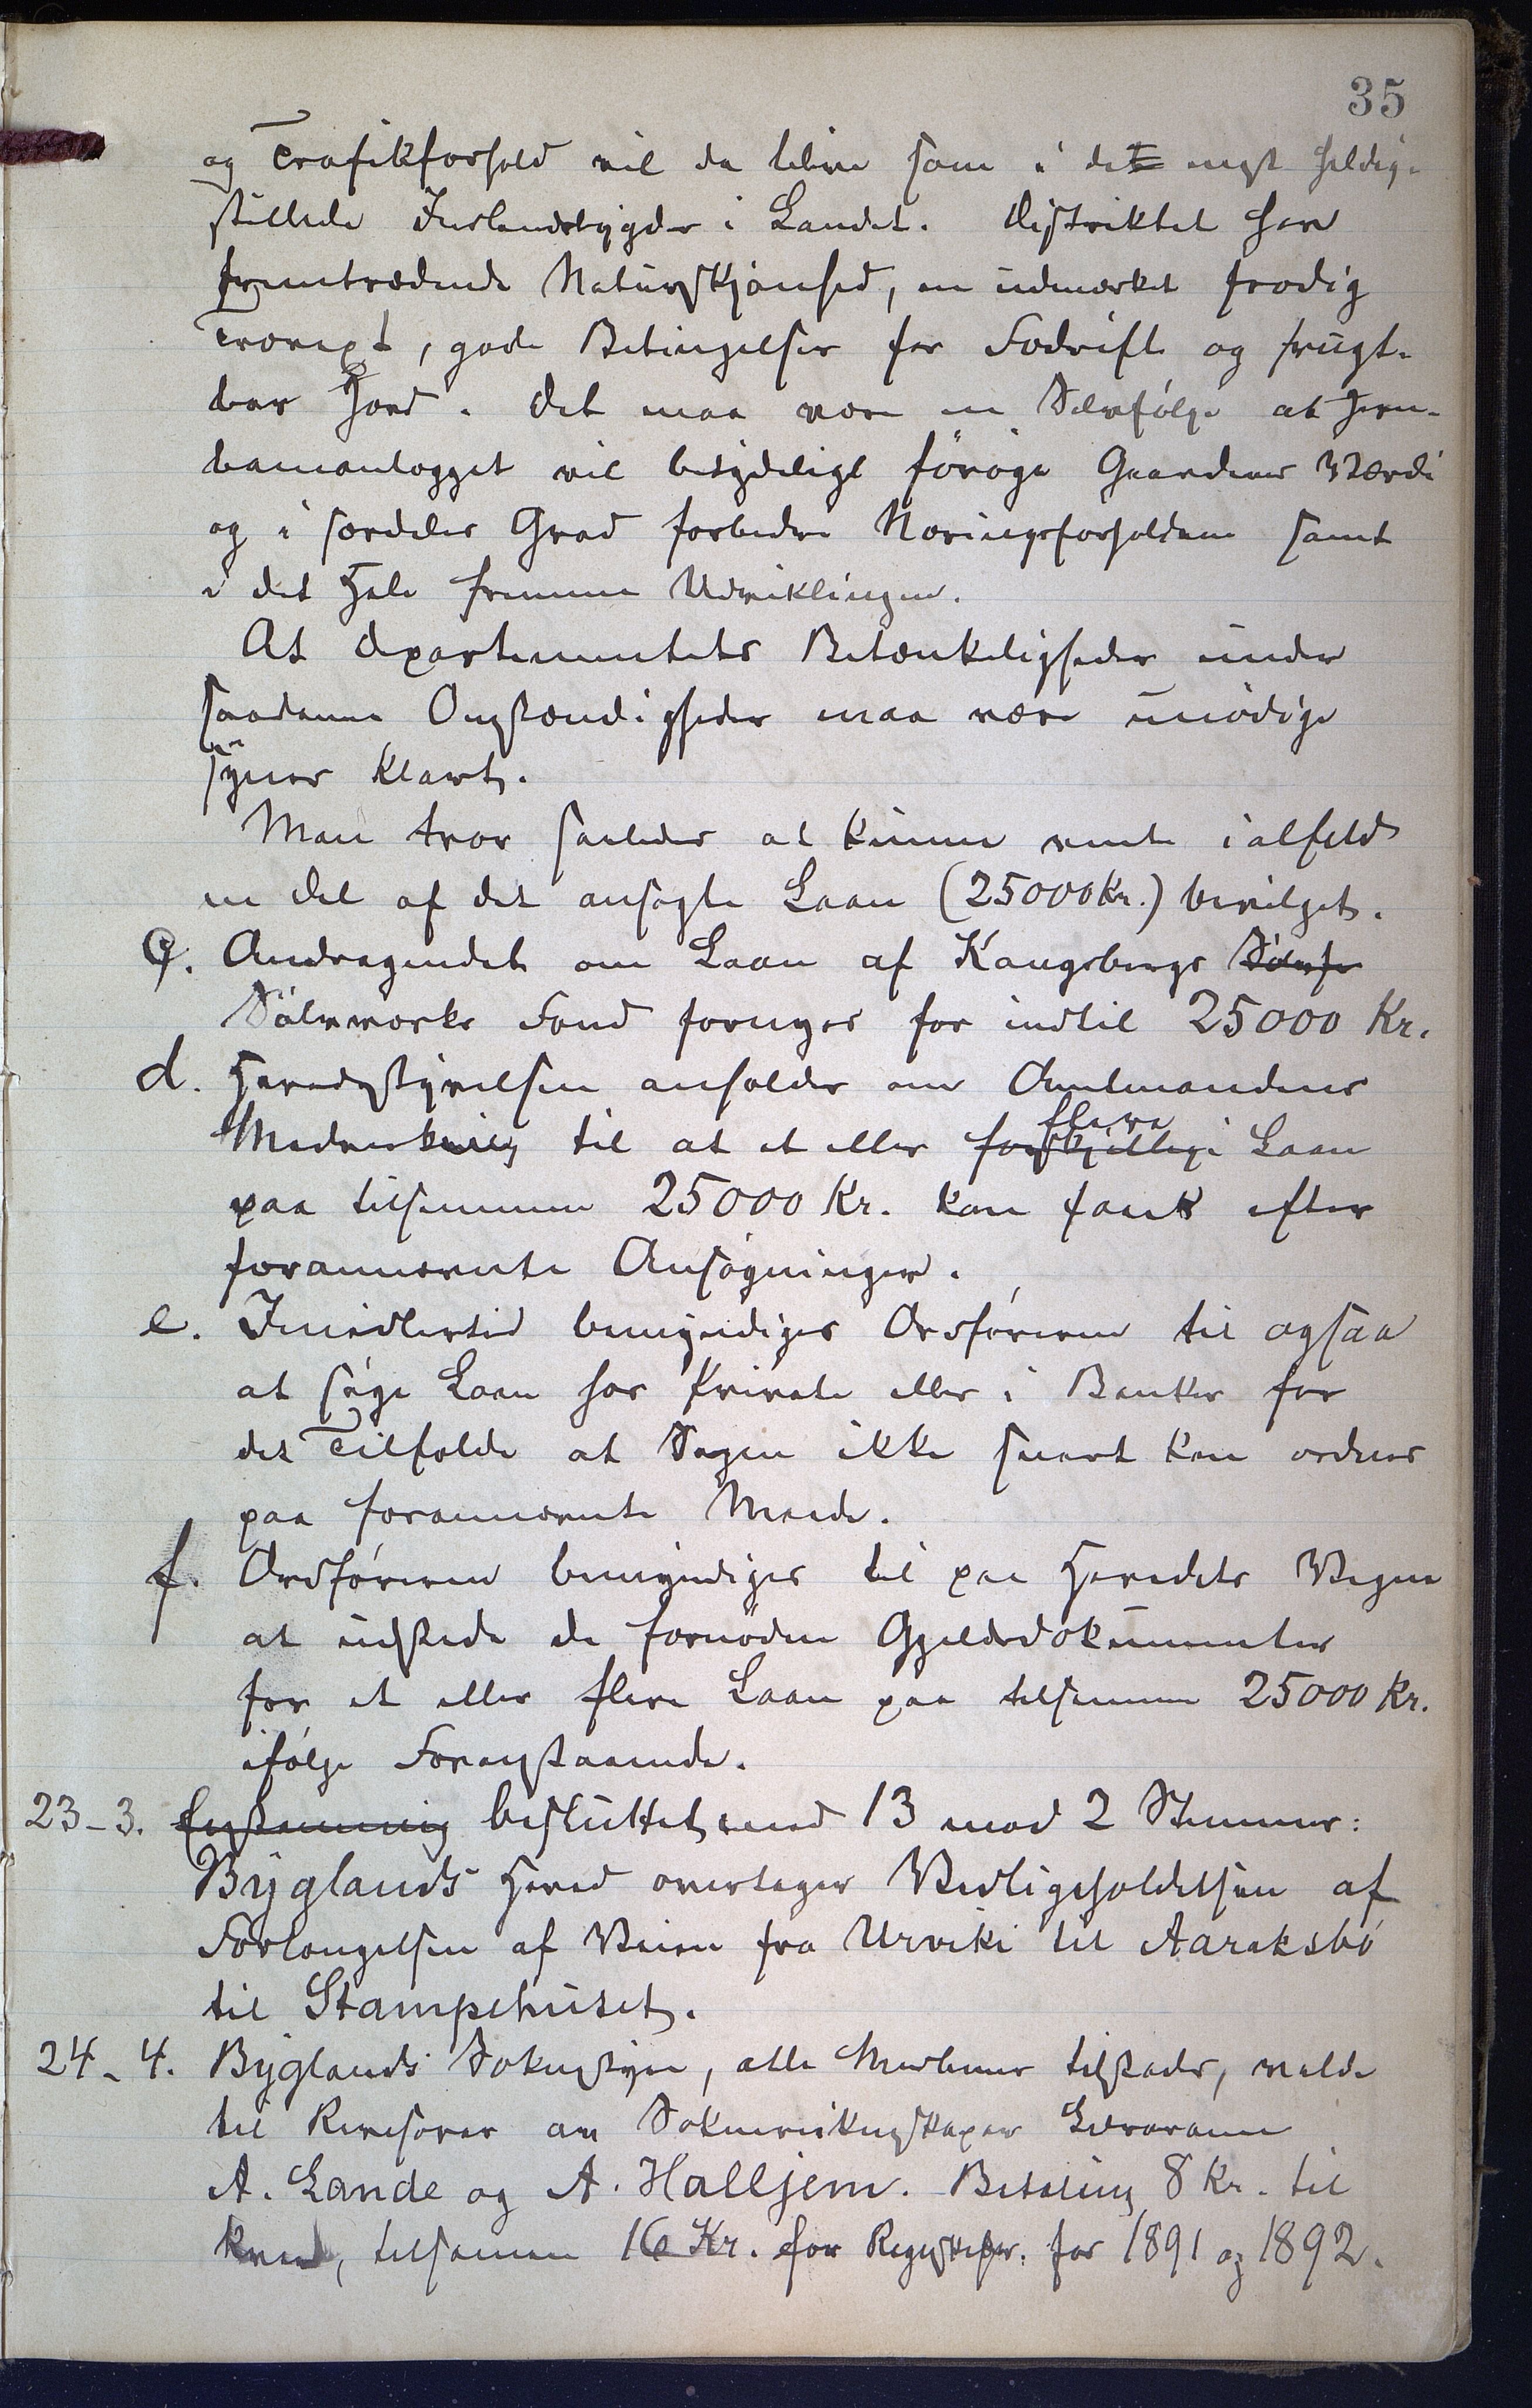 35
og Trafikforhold vil da blive som i det mest heldig-
stillede Indlandsbygder i Landet. Distriktet har
fremtrædende Naturskjønhed, en udmærket frodig
Trævext, gode Betingelser for Fædrift og frugt-
bar Jord. Det maa være en Selvfølge at Jern-
baneanlægget vil betydeligt forøge Gaardenes Værdi
og i særdeles Grad forbedre Næringsforholdene samt
i det Hele fremme Udviklingen.
At Departementets Betænkeligheder under
saadanne Omstændigheder maa være unødige
synes klart.
Man tror saaledes at kunne vente ialfald
en Del af det ansøgte Laan (25000 Kr.) bevilget.
c. Andragendet om Laan af Kongsbergs Sølvf
Sølvværks Fond fornyes for indtil 25000 Kr.
d. Heredsstyrelsen anholder om Amtmandens
flere
Medvirkning til at et eller forskjellige Laan
paa tilsammen 25000 Kr. kan faaes efter
forannævnte Ansøgninger.
e. Imidlertid bemyndiges Ordføreren til ogsaa
at søge Laan hos Private eller i Banker for
det Tilfælde at Sagen ikke snart kan ordnes
paa forannævnte Maade.
f. Ordføreren bemyndiges til paa Heredets Vegne
at udstede de fornødne Gjeldsdokumenter
for et eller flere Laan paa tilsammen 25000 Kr.
ifølge Foranstaaende.
23-3. Enstemmig besluttet med 13 mod 2 Stemmer:
Byglands Hered overtager Vedligeholdelsen af
Forlængelsen af Veien fra Urviki til Aaraksbø
til Stampehuset.
24-4. Byglands Soknestyre, alle Medlemer tilstade, valde
til Revisorar av Soknerekneskapar Lærarane
A. Lande og A. Halljem. Betaling 8 Kr. til
kvar, tilsaman 16 Kr. for Regnskaper. for 1891 og 1892.